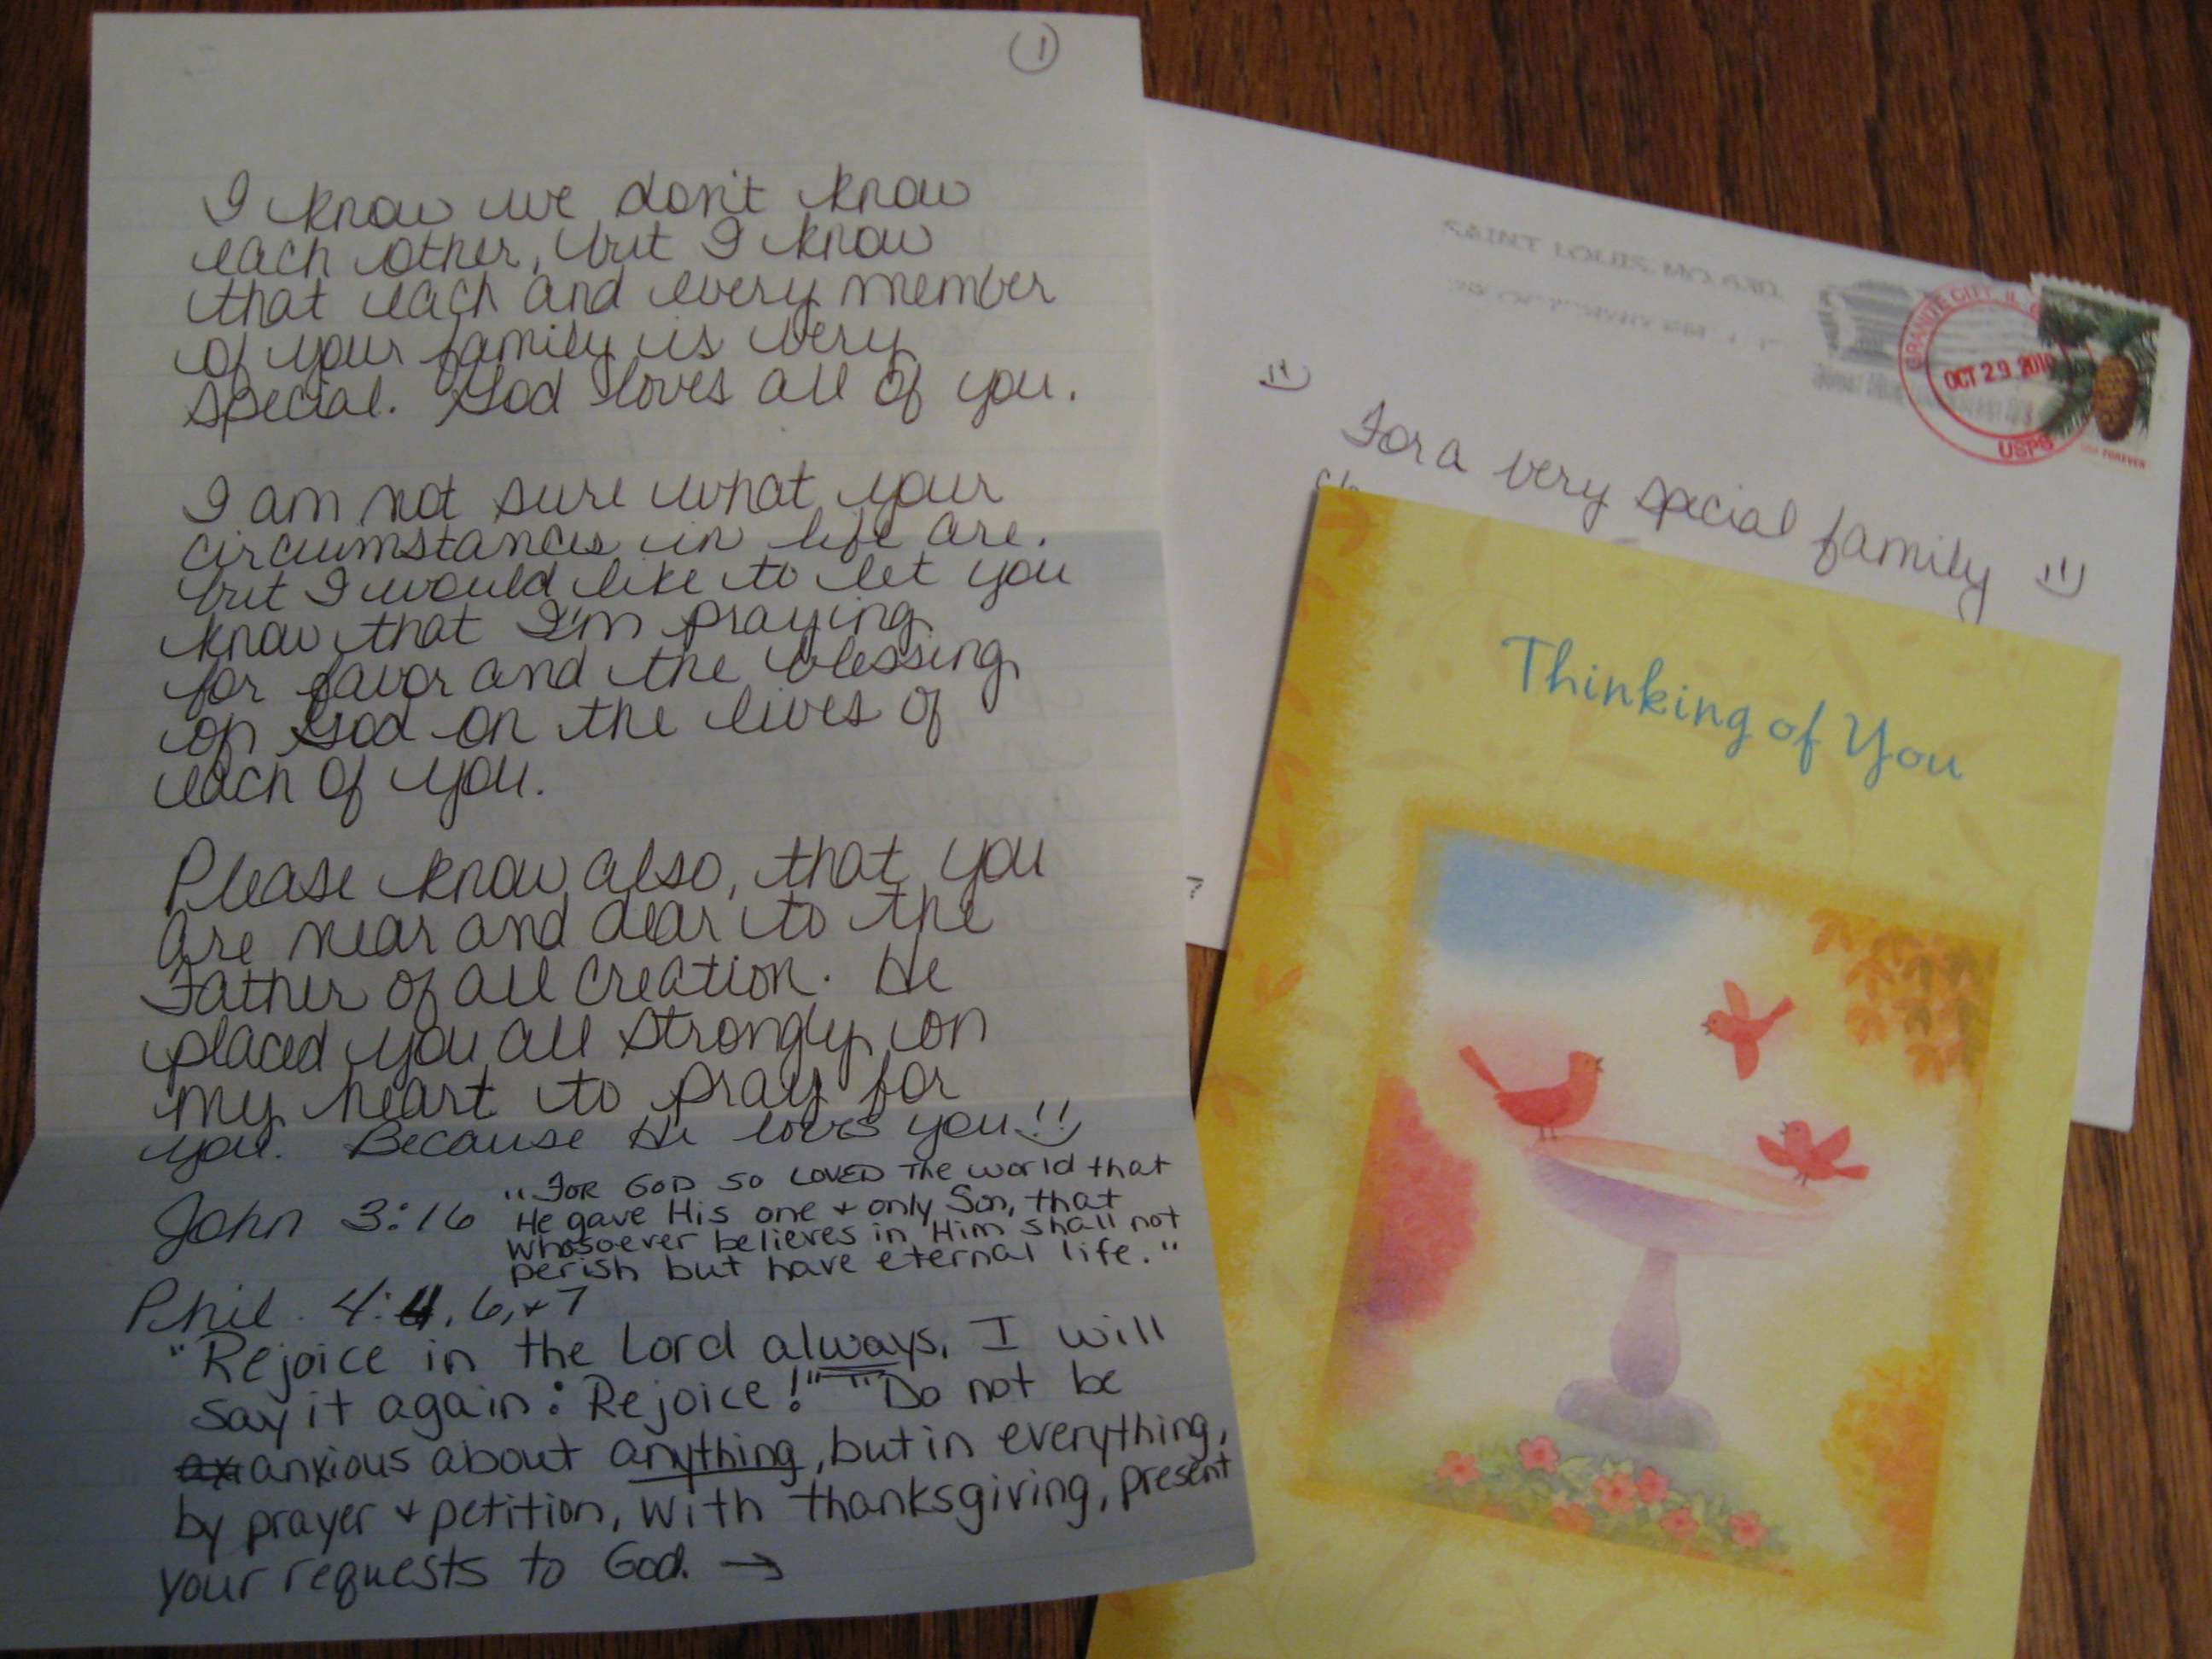 1
I know we don't know
each other, but I know
that each and every member
of your family is very
special. God loves all of you.
I am not sure what your
circumstances in life are.
but I would like to let you
know that I'm praying
for favor and the blessing
of God on the lives of
each of you.
Please know also, that you
are near and dear to the
Father of all creation. He
placed you all strongly on
my heart to pray for
you. Because He loves you!!
John 3:16 "FOR GOD SO LOVED The world that
He gave His one + only Son, that
whosoever believes in Him shall not
perish but have eternal life."
Phil. 4:4, 6, + 7
"Rejoice in the Lord always, I will
say it again: Rejoice!" "Do not be
anxious about anything, but in everything,
by prayer + petition, with thanksgiving, present
your requests to God. →
SAINT LOUIS MO
GRANITE CITY, IL
OCT 29 2010
USPS
FOREVER
For a very special family
Thinking of You